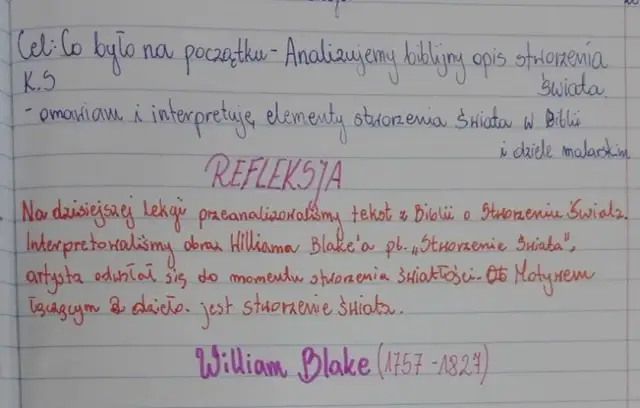 Cel: Co było na początku - Analizujemy biblijny opis stworzenia
świata.
K.S
- omawiam i interpretuję elementy stworzenia świata w Biblii
i dziele malarskim
REFLEKSJA
Na dzisiejszej lekcji przeanalizowaliśmy tekst z Biblii o Stworzeniu Świata.
Interpretowaliśmy obraz Williama Blake'a pt. „Stworzenie świata",
artysta odwołał się do momentu stworzenia światłości. Motywem
łączącym 2 dzieła. jest stworzenie świata.
William Blake (1757-1827)